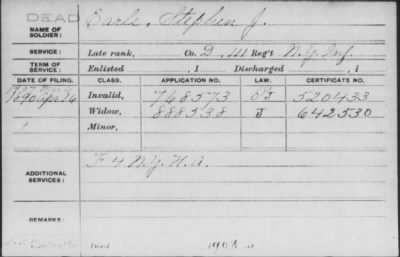 DEAD
NAME OF SOLDIER: Earls, Stephen J.
SERVICE: Late rank, Co. D, 41 Reg't N.Y. Inf.
TERM OF SERVICE: Enlisted , 1 Discharged , 1
DATE OF FILING. CLASS. APPLICATION NO. LAW. CERTIFICATE NO.
Invalid, 768573 520433
1907 Widow, 888538 J 642530
Minor,
ADDITIONAL SERVICES: F 4 N.Y. H.A.
REMARKS:
1908